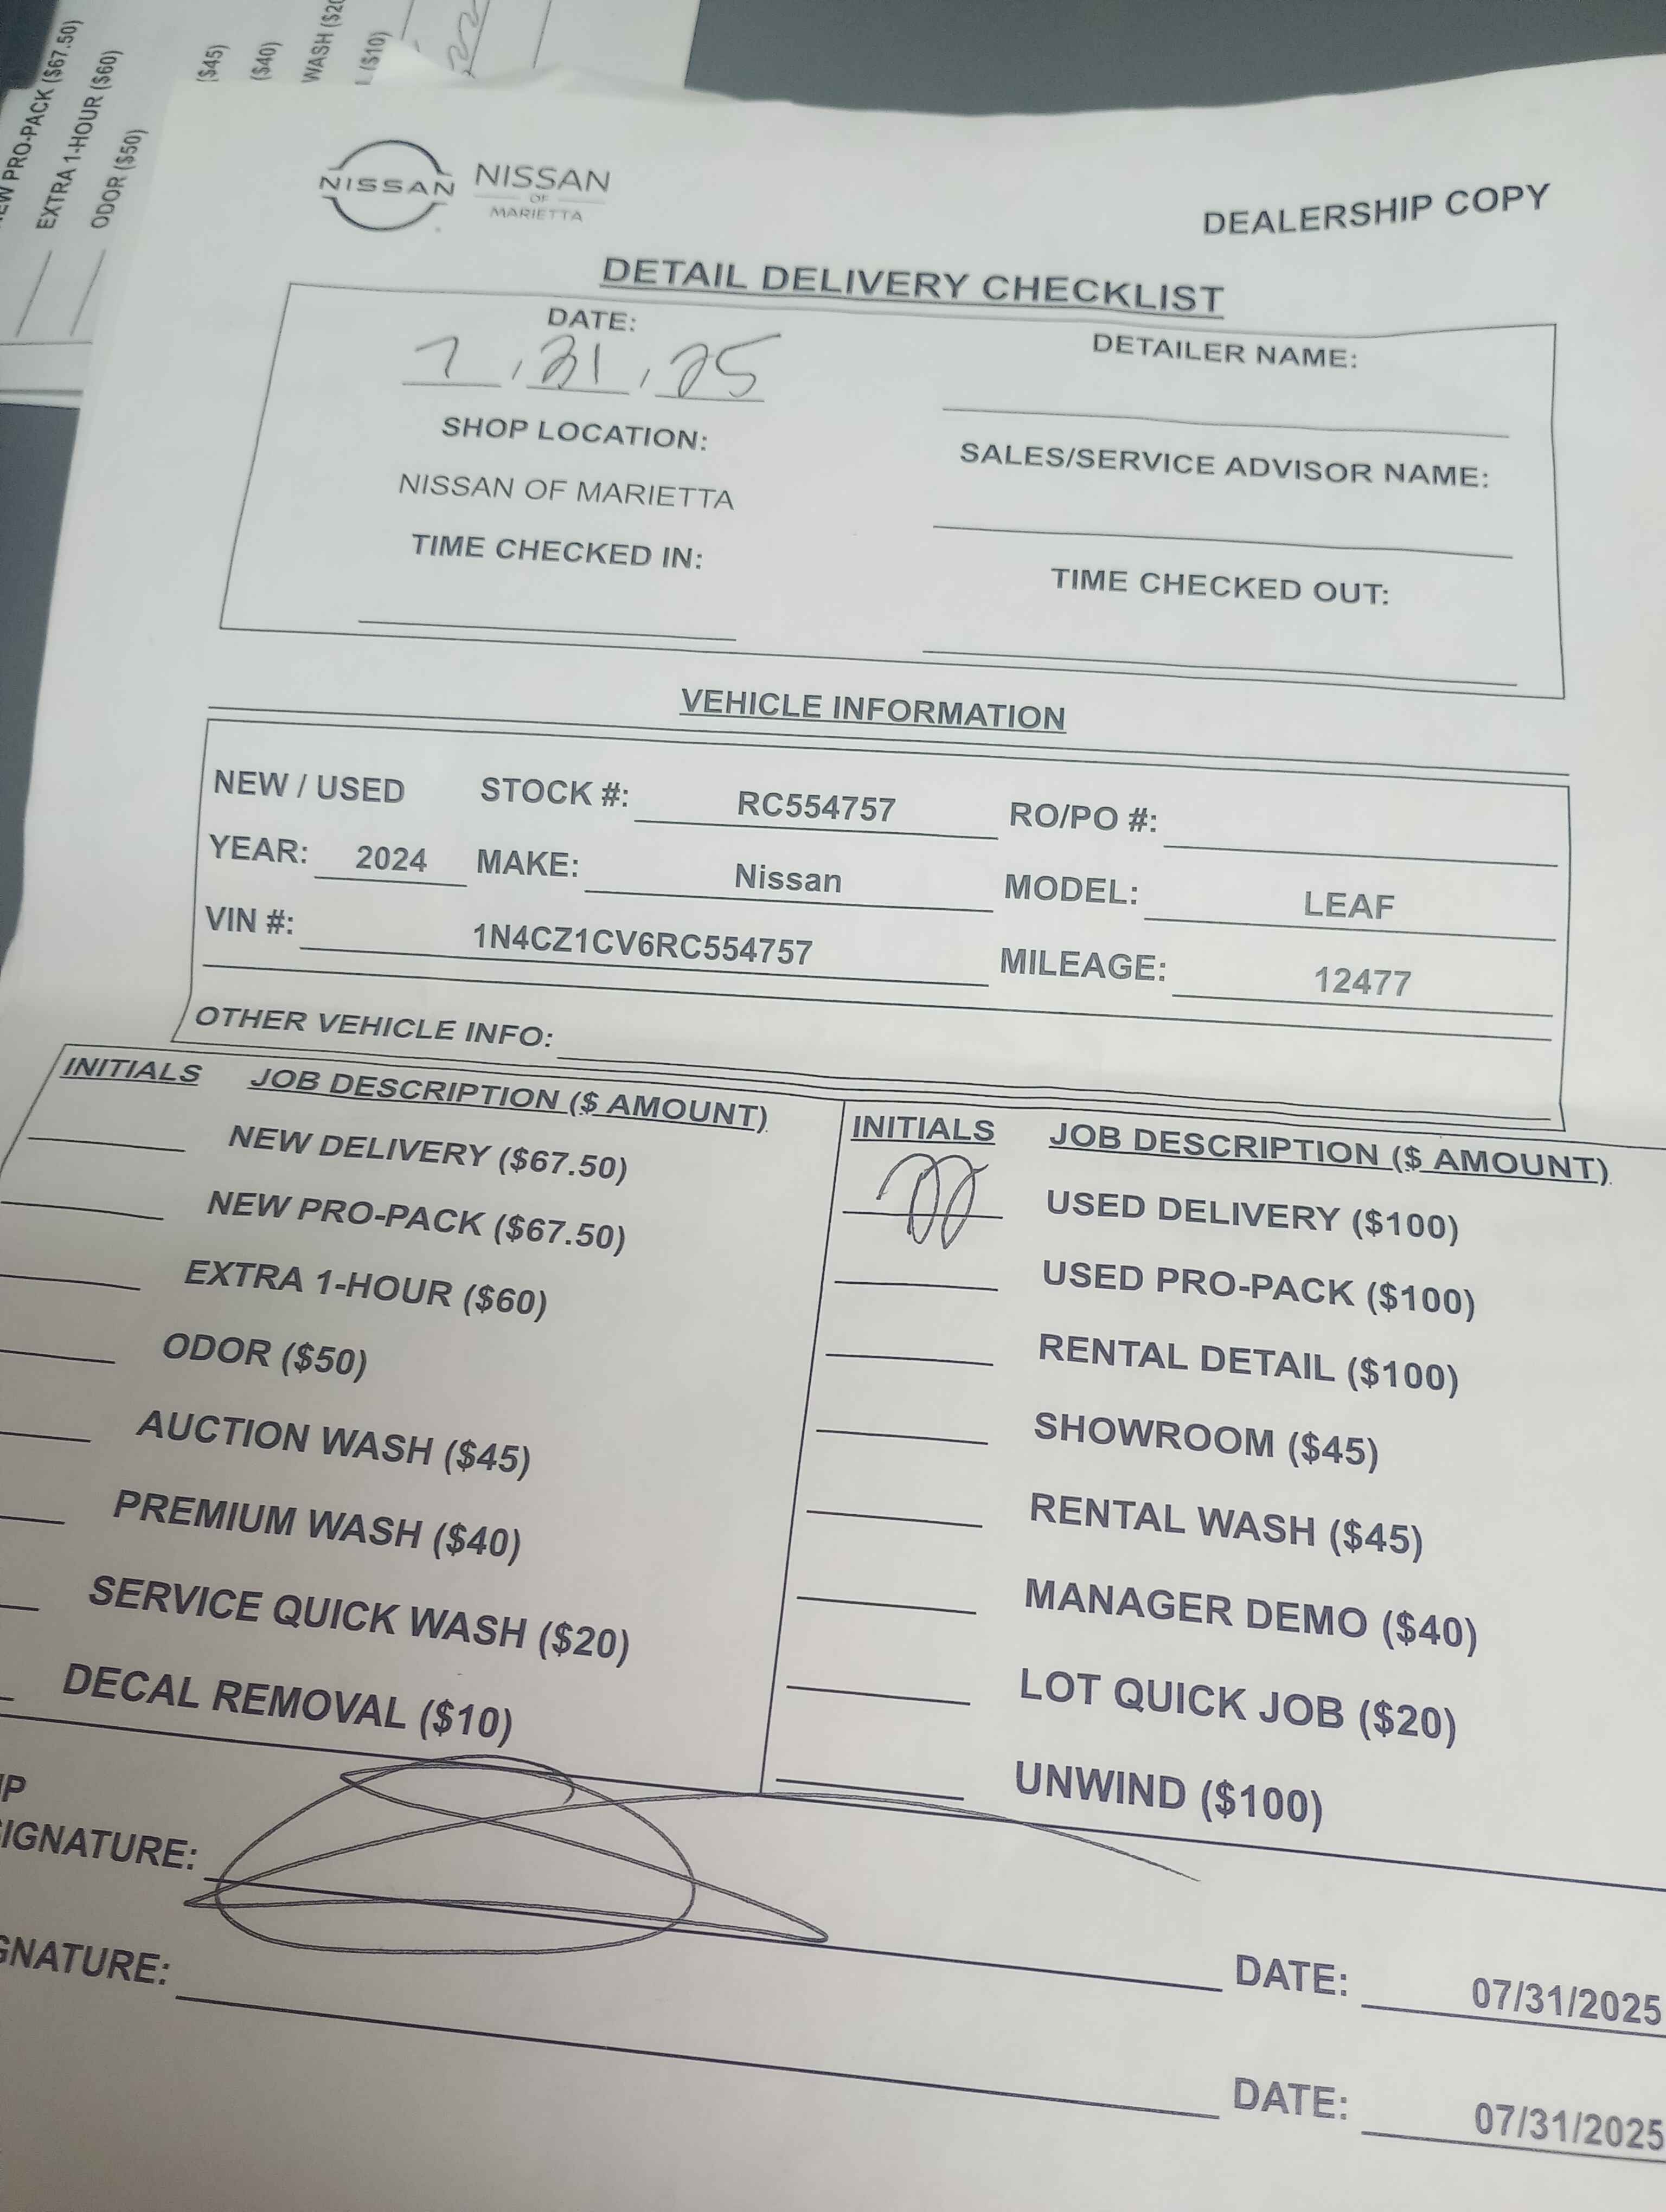 NEW PRO-PACK ($67.50)
EXTRA 1-HOUR ($60)
ODOR ($50)
($45)
($40)
WASH ($20
($10)
NISSAN
NISSAN
OF
MARIETTA
DEALERSHIP COPY
DETAIL DELIVERY CHECKLIST
DATE:
7, 31, 25
DETAILER NAME:
SHOP LOCATION:
NISSAN OF MARIETTA
SALES/SERVICE ADVISOR NAME:
TIME CHECKED IN:
TIME CHECKED OUT:
VEHICLE INFORMATION
NEW / USED STOCK #: RC554757 RO/PO #:
YEAR: 2024 MAKE: Nissan MODEL: LEAF
VIN #: 1N4CZ1CV6RC554757 MILEAGE: 12477
OTHER VEHICLE INFO:
INITIALS JOB DESCRIPTION ($ AMOUNT)
NEW DELIVERY ($67.50)
NEW PRO-PACK ($67.50)
EXTRA 1-HOUR ($60)
ODOR ($50)
AUCTION WASH ($45)
PREMIUM WASH ($40)
SERVICE QUICK WASH ($20)
DECAL REMOVAL ($10)
INITIALS JOB DESCRIPTION ($ AMOUNT)
USED DELIVERY ($100)
USED PRO-PACK ($100)
RENTAL DETAIL ($100)
SHOWROOM ($45)
RENTAL WASH ($45)
MANAGER DEMO ($40)
LOT QUICK JOB ($20)
UNWIND ($100)
IP
IGNATURE: DATE: 07/31/2025
GNATURE: DATE: 07/31/2025